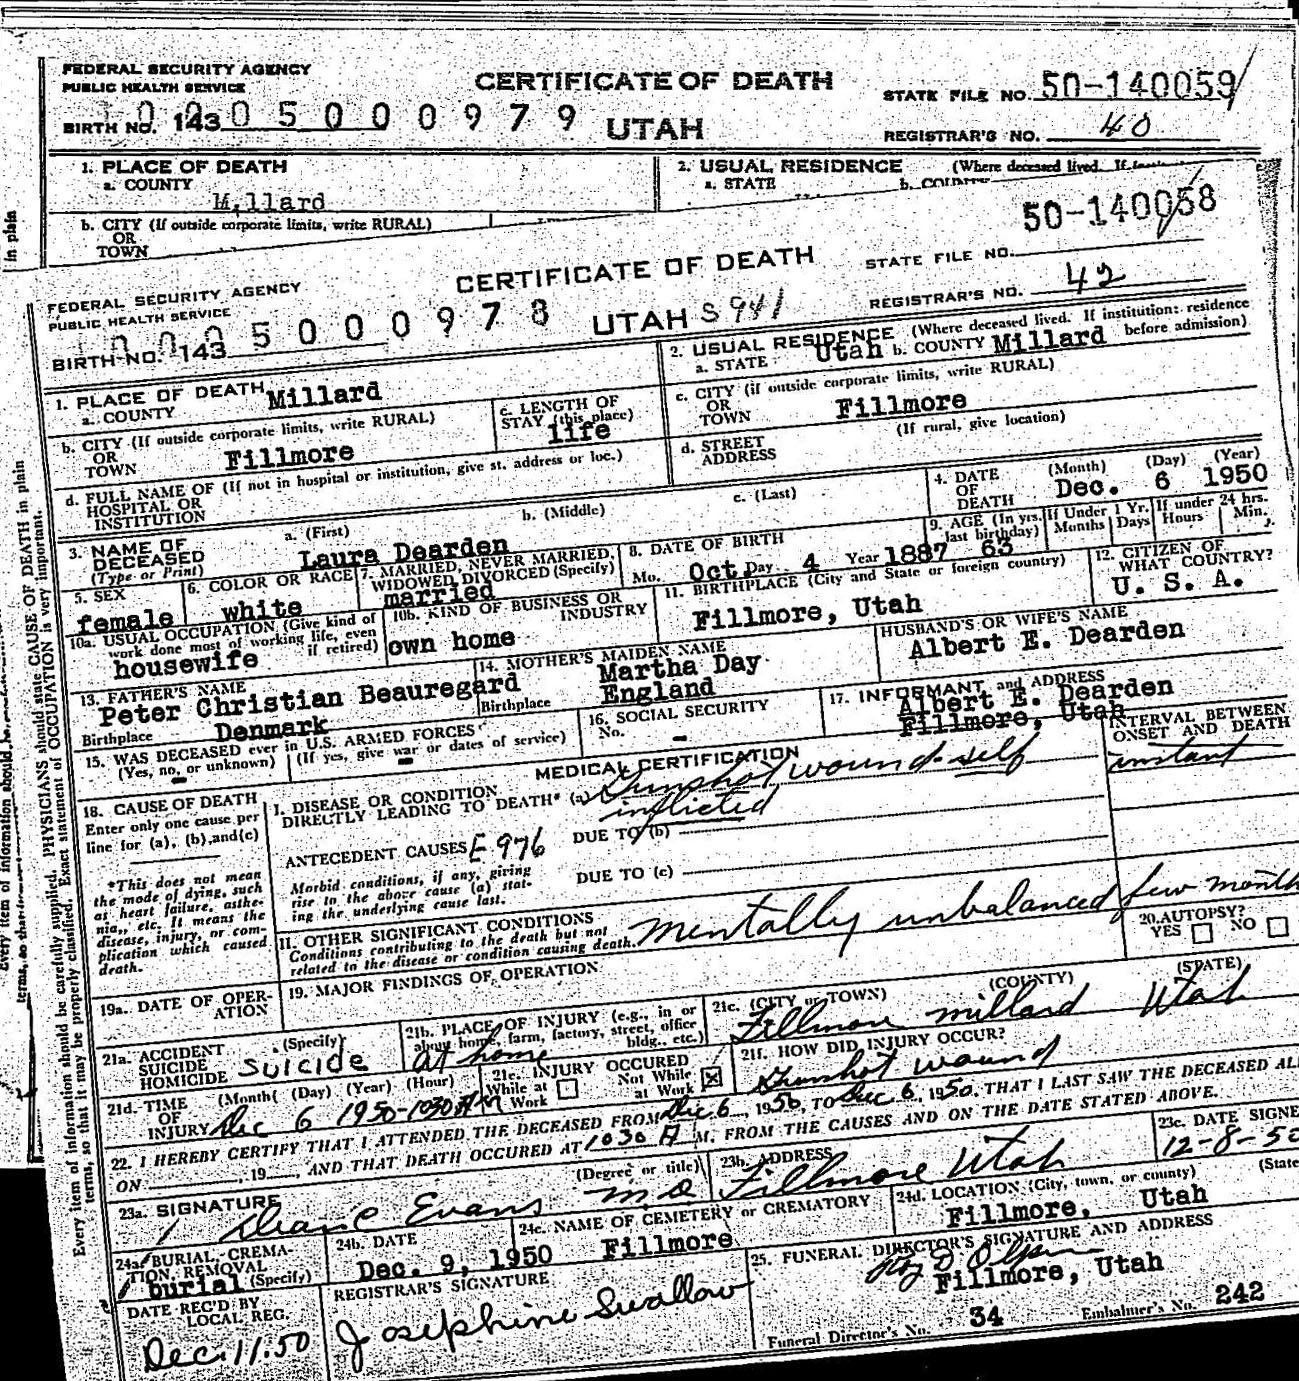 FEDERAL SECURITY AGENCY
PUBLIC HEALTH SERVICE
CERTIFICATE OF DEATH
STATE FILE NO. 50-140059
BIRTH NO. 143 0 5 0 0 0 9 7 9
UTAH
REGISTRAR'S NO. 40
1. PLACE OF DEATH
a. COUNTY
Millard
2. USUAL RESIDENCE (Where deceased lived. If
a. STATE b. COUNTY
b. CITY (If outside corporate limits, write RURAL)
OR
TOWN
in plain
50-140058
FEDERAL SECURITY AGENCY
PUBLIC HEALTH SERVICE
CERTIFICATE OF DEATH
STATE FILE NO.
BIRTH NO. 143 5 0 0 0 9 7 8
UTAH S 941
REGISTRAR'S NO. 42
1. PLACE OF DEATH
a. COUNTY Millard
2. USUAL RESIDENCE (Where deceased lived. If institution: residence before admission)
a. STATE Utah b. COUNTY Millard
b. CITY (If outside corporate limits, write RURAL)
OR
TOWN Fillmore
c. LENGTH OF
STAY (this place)
life
c. CITY (if outside corporate limits, write RURAL)
OR
TOWN Fillmore
d. FULL NAME OF (If not in hospital or institution, give st. address or loc.)
HOSPITAL OR
INSTITUTION
d. STREET (If rural, give location)
ADDRESS
3. NAME OF
DECEASED
(Type or Print)
a. (First) b. (Middle) c. (Last)
Laura Dearden
4. DATE
OF
DEATH
(Month) (Day) (Year)
Dec. 6 1950
5. SEX
female
6. COLOR OR RACE
white
7. MARRIED, NEVER MARRIED,
WIDOWED, DIVORCED (Specify)
married
8. DATE OF BIRTH
Mo. Oct. Day 4 Year 1887
9. AGE (In yrs.
last birthday)
63
If Under 1 Yr.
Months Days
If under 24 hrs.
Hours Min.
10a. USUAL OCCUPATION (Give kind of
work done most of working life, even
if retired)
housewife
10b. KIND OF BUSINESS OR
INDUSTRY
own home
11. BIRTHPLACE (City and State or foreign country)
Fillmore, Utah
12. CITIZEN OF
WHAT COUNTRY?
U. S. A.
13. FATHER'S NAME
Peter Christian Beauregard
Birthplace Denmark
14. MOTHER'S MAIDEN NAME
Martha Day
Birthplace England
HUSBAND'S OR WIFE'S NAME
Albert E. Dearden
15. WAS DECEASED ever in U.S. ARMED FORCES
(Yes, no, or unknown) (If yes, give war or dates of service)
- -
16. SOCIAL SECURITY
No. -
17. INFORMANT and ADDRESS
Albert E. Dearden
Fillmore, Utah
MEDICAL CERTIFICATION
INTERVAL BETWEEN
ONSET AND DEATH
18. CAUSE OF DEATH
Enter only one cause per
line for (a), (b), and (c)
I. DISEASE OR CONDITION
DIRECTLY LEADING TO DEATH* (a) Gunshot wound-self
inflicted
instant
DUE TO (b)
ANTECEDENT CAUSES E 976
Morbid conditions, if any, giving
rise to the above cause (a) stat-
ing the underlying cause last.
DUE TO (c)
*This does not mean
the mode of dying, such
as heart failure, asthe-
nia, etc. It means the
disease, injury, or com-
plication which caused
death.
II. OTHER SIGNIFICANT CONDITIONS
Conditions contributing to the death but not
related to the disease or condition causing death.
mentally unbalanced few month
19a. DATE OF OPER-
ATION
19. MAJOR FINDINGS OF OPERATION
20. AUTOPSY?
YES NO
21a. ACCIDENT (Specify)
SUICIDE
HOMICIDE suicide
21b. PLACE OF INJURY (e.g., in or
about home, farm, factory, street, office
bldg., etc.)
at home
21c. (CITY or TOWN) (COUNTY) (STATE)
Fillmore Millard Utah
21d. TIME (Month) (Day) (Year) (Hour)
OF
INJURY Dec 6 1950-1030 AM
21e. INJURY OCCURED
While at Work Not While at Work
21f. HOW DID INJURY OCCUR?
Gunshot wound
22. I HEREBY CERTIFY THAT I ATTENDED THE DECEASED FROM Dec 6, 1950, TO Dec 6, 1950. THAT I LAST SAW THE DECEASED AL
ON , 19 , AND THAT DEATH OCCURED AT 1030 A M. FROM THE CAUSES AND ON THE DATE STATED ABOVE.
23a. SIGNATURE (Degree or title)
Evans M.D.
23b. ADDRESS
Fillmore Utah
23c. DATE SIGNE
12-8-50
24a. BURIAL, CREMA-
TION, REMOVAL
burial (Specify)
24b. DATE
Dec. 9, 1950
24c. NAME OF CEMETERY or CREMATORY
Fillmore
24d. LOCATION (City, town, or county) (State
Fillmore, Utah
DATE REC'D BY
LOCAL REG.
Dec. 11. 50
REGISTRAR'S SIGNATURE
Josephine Swallow
25. FUNERAL DIRECTOR'S SIGNATURE AND ADDRESS
Fillmore, Utah
Funeral Director's No. 34 Embalmer's No. 242
Every item of information should be carefully supplied. PHYSICIANS should state CAUSE OF DEATH in plain
terms, so that it may be properly classified. Exact statement of OCCUPATION is very important.